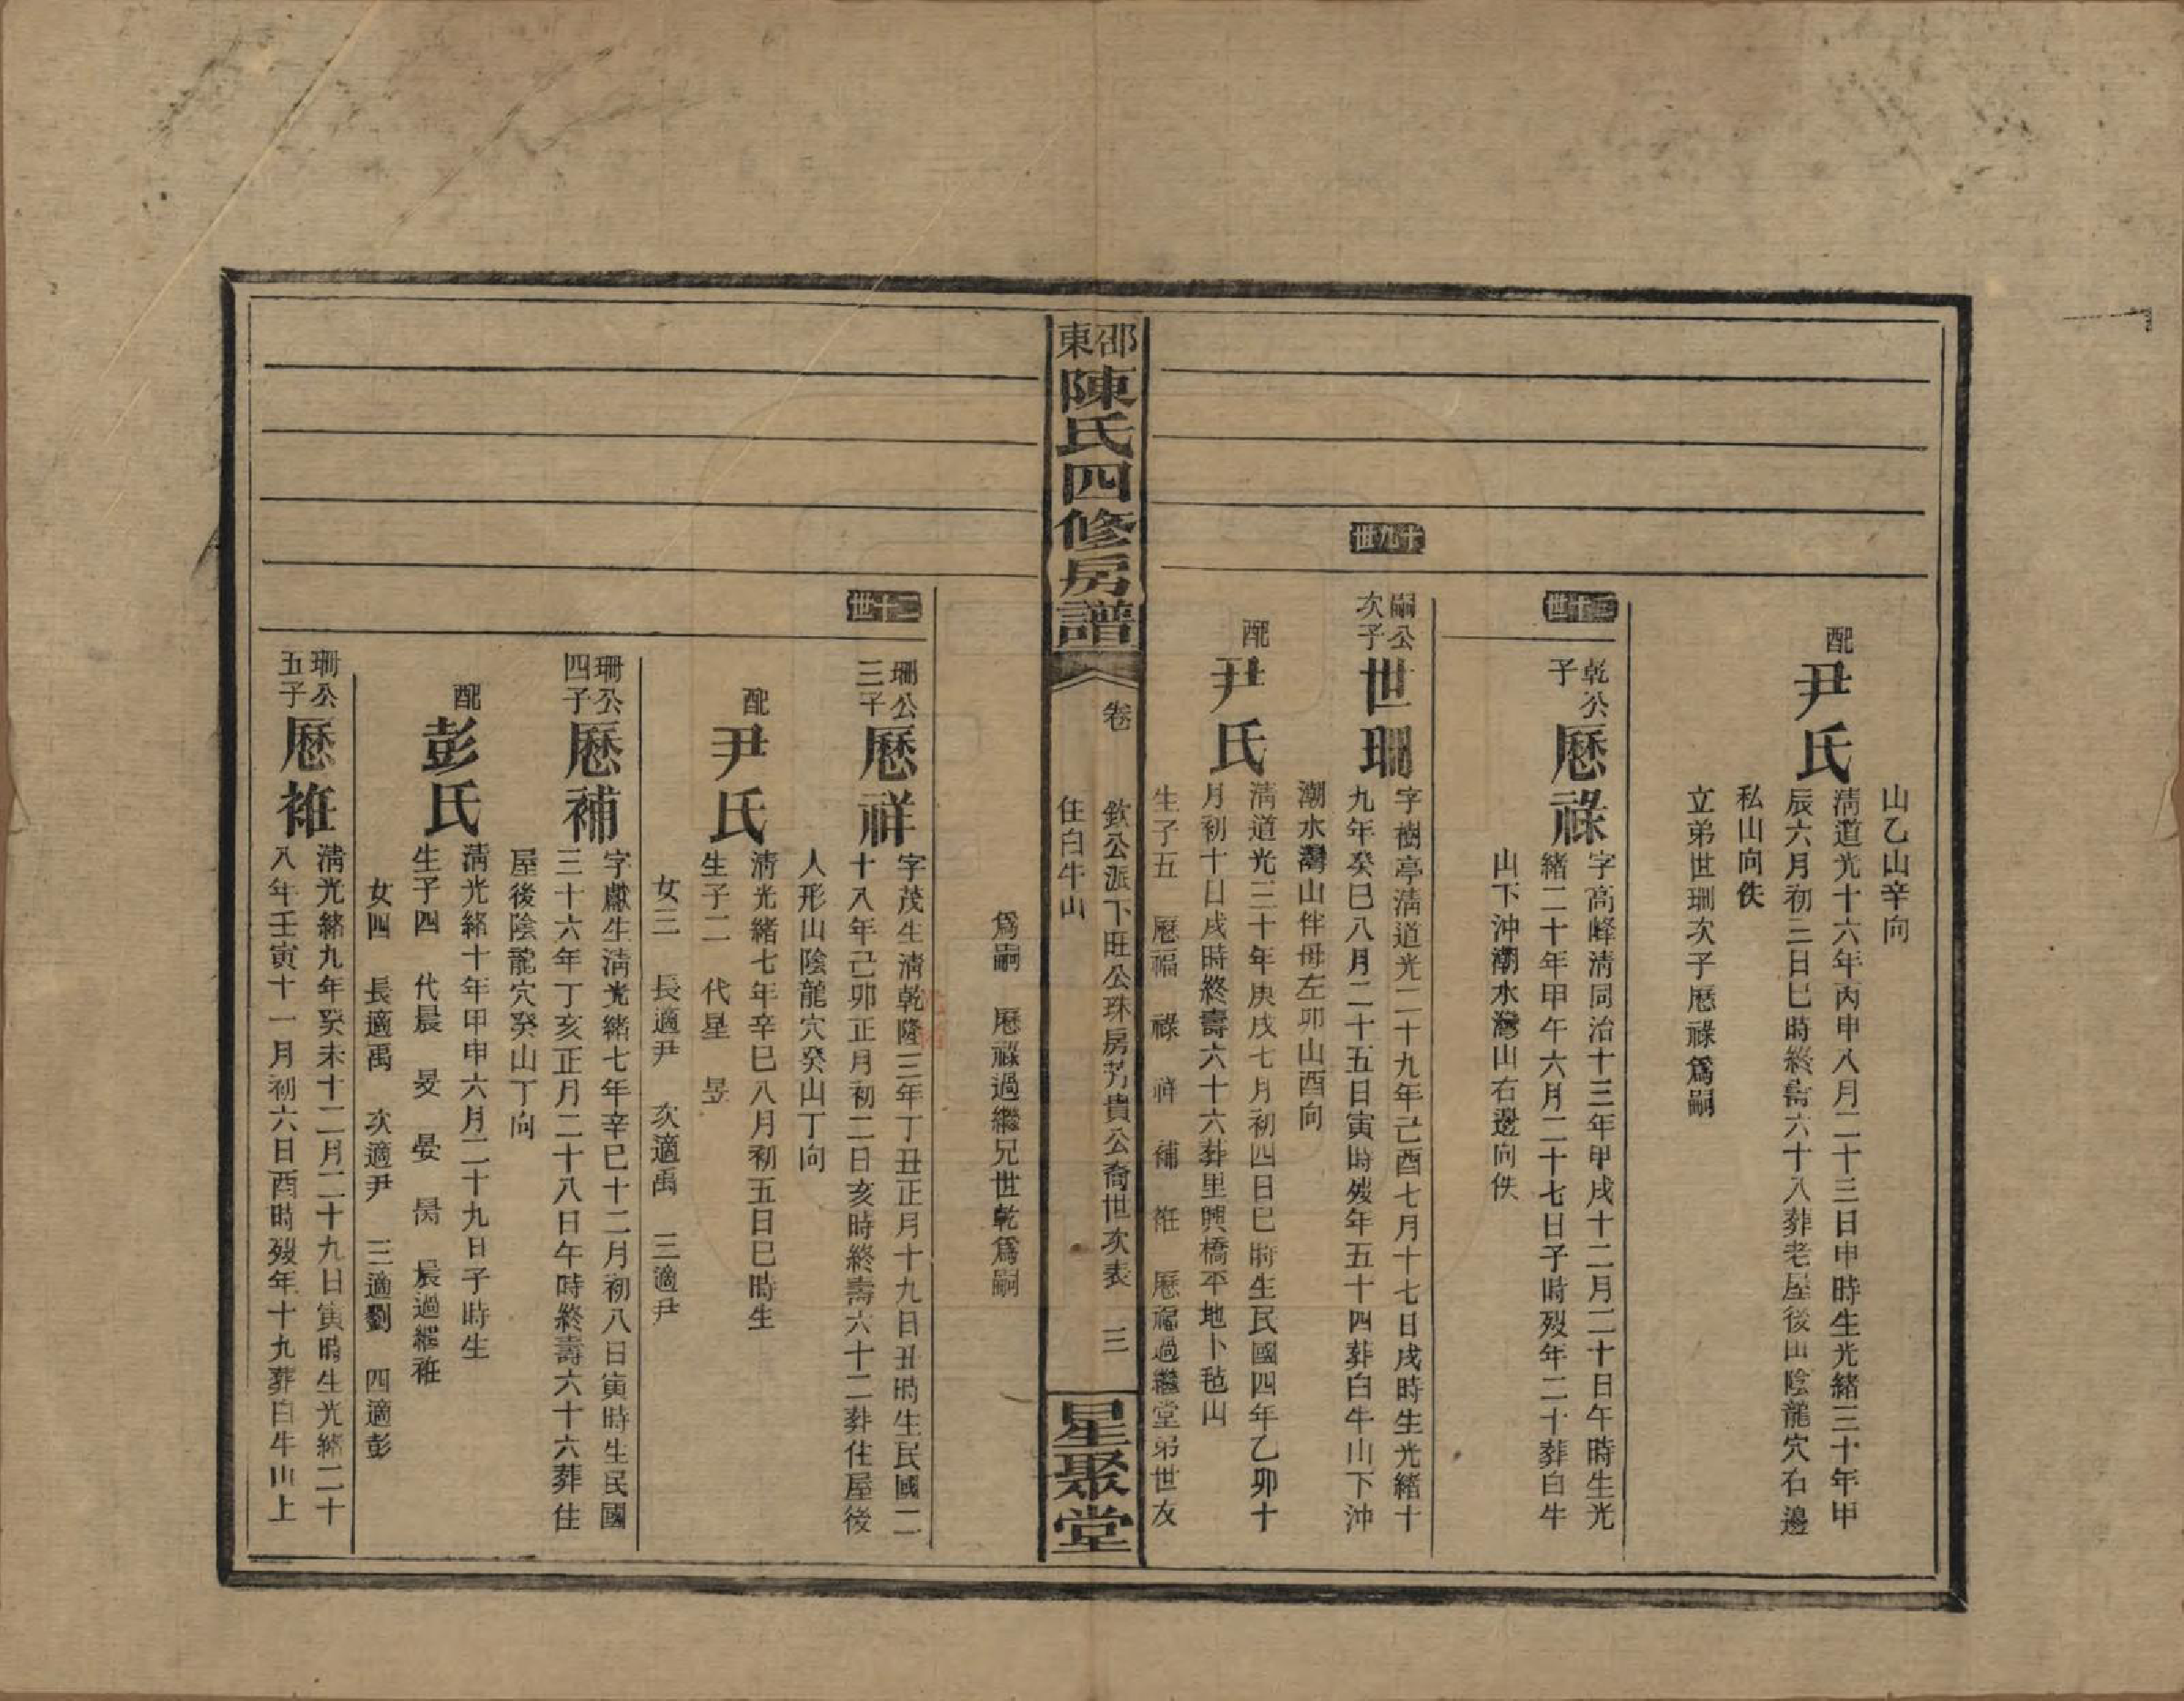 山乙山辛向
配
尹氏
淸道光十六年丙申八月二十三日申時生光緒三十年甲
辰六月初三日巳時終壽六十八葬老屋後山陰龍穴右邊
私山向佚
立弟世珊次子歷祿爲嗣
二十世
乾公
子
歷祿
字高峰淸同治十三年甲戌十二月二十日午時生光
緒二十年甲午六月二十七日子時歿年二十葬白牛
山下沖潮水灣山右邊向佚
十九世
嗣公
次子
世珊
字樹亭淸道光二十九年己酉七月十七日戌時生光緒十
九年癸巳八月二十五日寅時歿年五十四葬白牛山下沖
潮水灣山伴母左卯山酉向
配
尹氏
淸道光三十年庚戌七月初四日巳時生民國四年乙卯十
月初十日戌時終壽六十六葬里興橋平地卜毡山
生子五 歷福 祿 祥 補 袵 歷福過繼堂弟世友
邵東
陳氏四修房譜
卷
欽公派下旺公珠房艿貴公裔世次表 三
住白牛山
星聚堂
爲嗣 歷祿過繼兄世乾爲嗣
二十世
珊公
三子
歷祥
字茂生淸乾隆三年丁丑正月十九日丑時生民國二
十八年己卯正月初二日亥時終壽六十二葬住屋後
人形山陰龍穴癸山丁向
配
尹氏
淸光緒七年辛巳八月初五日巳時生
生子二 代星 昱
女三 長適尹 次適禹 三適尹
珊公
四子
歷補
字黻生淸光緒七年辛巳十二月初八日寅時生民國
三十六年丁亥正月二十八日午時終壽六十六葬住
屋後陰龍穴癸山丁向
配
彭氏
淸光緒十年甲申六月二十九日子時生
生子四 代晨 旻 晏 昺 晨過繼袵
女四 長適禹 次適尹 三適劉 四適彭
珊公
五子
歷袵
淸光緒九年癸未十二月二十九日寅時生光緒二十
八年壬寅十一月初六日酉時歿年十九葬白牛山上